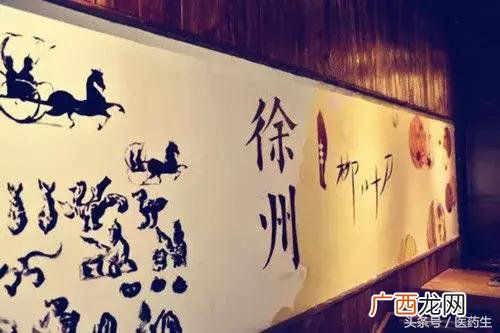 徐州
头条号 / 医药生
广西龙网